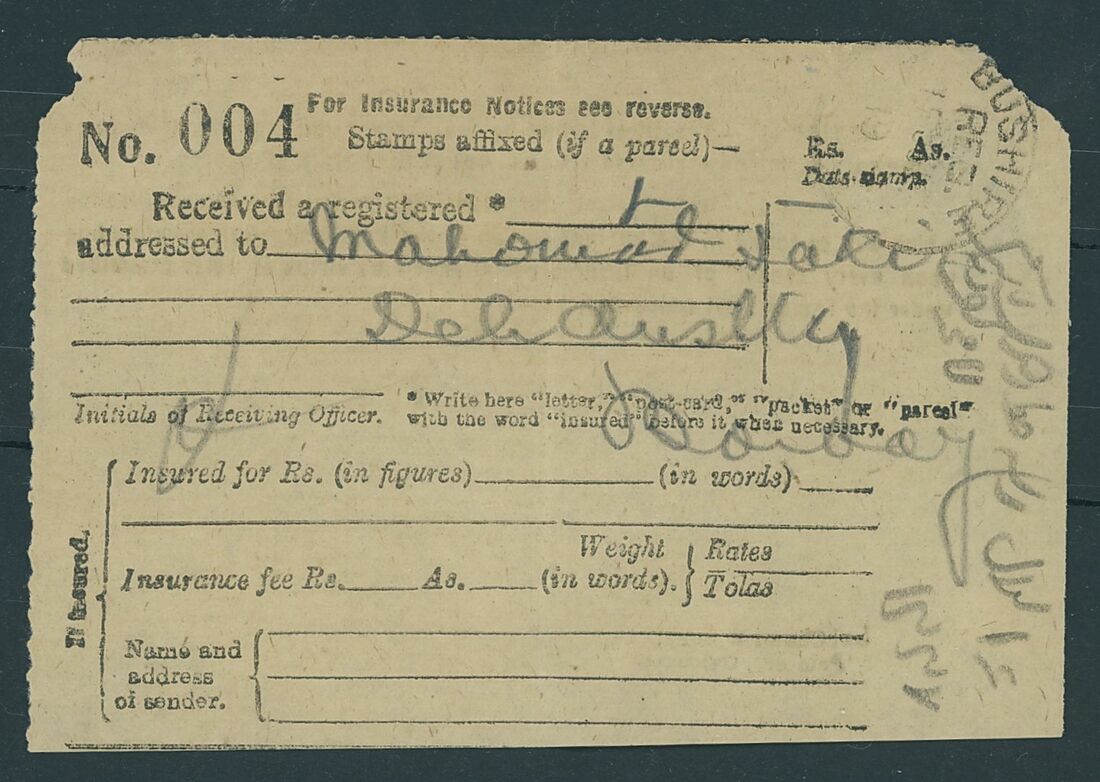 For Insurance Notices see reverse.
No. 004
Stamps affixed (if a parcel)—
Rs. As.
Date-stamp.
BUSHIRE
REG
Received a registered *
addressed to Mahomad Taki
Dehdushty
Bombay
Initials of Receiving Officer.
* Write here "letter," "post-card," "packet" or "parcel"
with the word "insured" before it when necessary.
If insured.
Insured for Rs. (in figures) (in words)
Insurance fee Rs. As. Weight (in words). Rates
Tolas
Name and
address
of sender.